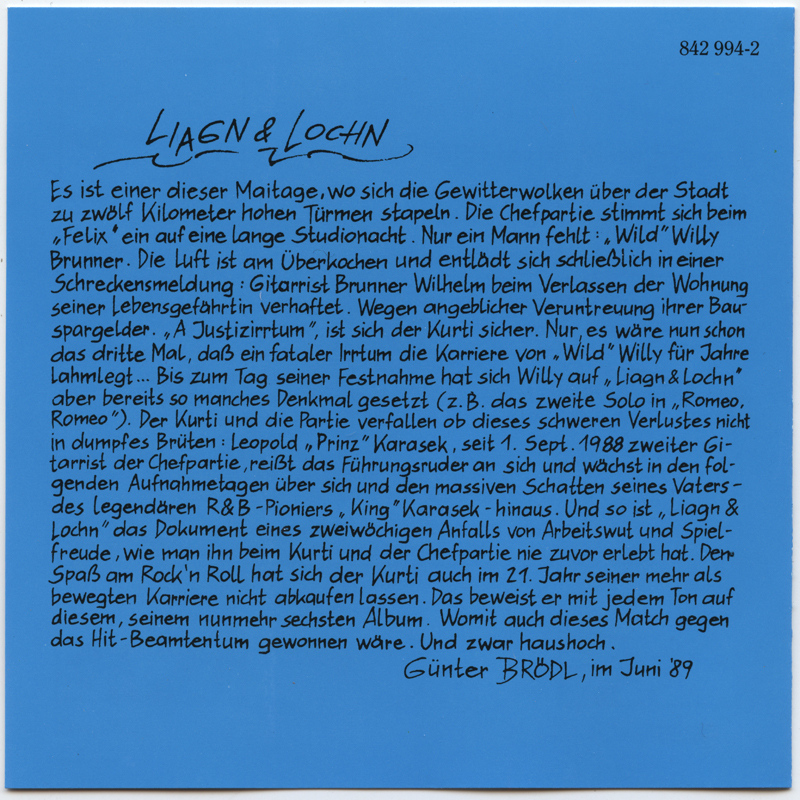 842 994-2
LIAGN & LOCHN
Es ist einer dieser Maitage, wo sich die Gewitterwolken über der Stadt
zu zwölf Kilometer hohen Türmen stapeln. Die Chefpartie stimmt sich beim
„Felix" ein auf eine lange Studionacht. Nur ein Mann fehlt: „Wild" Willy
Brunner. Die Luft ist am Überkochen und entlädt sich schließlich in einer
Schreckensmeldung: Gitarrist Brunner Wilhelm beim Verlassen der Wohnung
seiner Lebensgefährtin verhaftet. Wegen angeblicher Veruntreuung ihrer Bau-
spargelder. „A Justizirrtum", ist sich der Kurti sicher. Nur, es wäre nun schon
das dritte Mal, daß ein fataler Irrtum die Karriere von „Wild" Willy für Jahre
lahmlegt... Bis zum Tag seiner Festnahme hat sich Willy auf „Liagn & Lochn"
aber bereits so manches Denkmal gesetzt (z.B. das zweite Solo in „Romeo,
Romeo"). Der Kurti und die Partie verfallen ob dieses schweren Verlustes nicht
in dumpfes Brüten: Leopold „Prinz" Karasek, seit 1. Sept. 1988 zweiter Gi-
tarrist der Chefpartie, reißt das Führungsruder an sich und wächst in den fol-
genden Aufnahmetagen über sich und den massiven Schatten seines Vaters -
des legendären R&B-Pioniers „King" Karasek - hinaus. Und so ist „Liagn &
Lochn" das Dokument eines zweiwöchigen Anfalls von Arbeitswut und Spiel-
freude, wie man ihn beim Kurti und der Chefpartie nie zuvor erlebt hat. Den
Spaß am Rock'n Roll hat sich der Kurti auch im 21. Jahr seiner mehr als
bewegten Karriere nicht abkaufen lassen. Das beweist er mit jedem Ton auf
diesem, seinem nunmehr sechsten Album. Womit auch dieses Match gegen
das Hit-Beamtentum gewonnen wäre. Und zwar haushoch.
Günter BRÖDL, im Juni '89